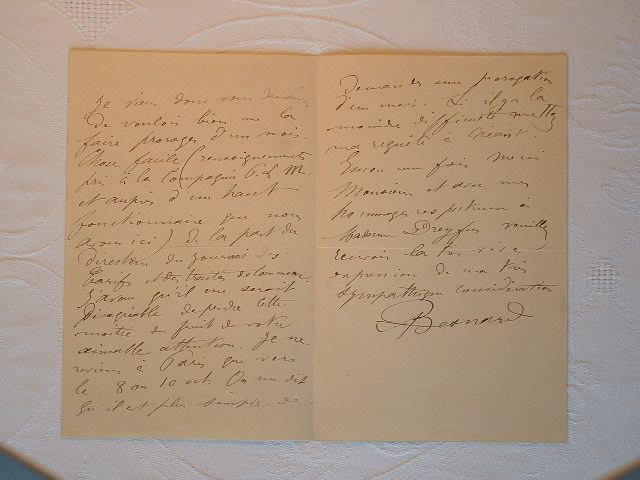 Je viens donc vous demander
de vouloir bien me la
faire proroger d'un mois.
Chose facile (renseignements
pris à la Compagnie P. L. M.
et auprès d'un haut
fonctionnaire que nous
avons ici) de la part du
directeur du Journal des
tarifs et des traités de commerce.
J'avoue qu'il me serait
désagréable de perdre cette
moitié du fruit de votre
aimable attention. Je ne
reviens à Paris que vers
le 8 ou 10 oct. On me dit
qu'il est plus simple de
demander une prorogation
d'un mois. Si il y a la
moindre difficulté mettez
ma requête à néant.
Encore une fois merci
Monsieur et avec mes
hommages respectueux à
Madame Dreyfus veuillez
recevoir la très vive
expression de ma très
sympathique considération
ABesnard